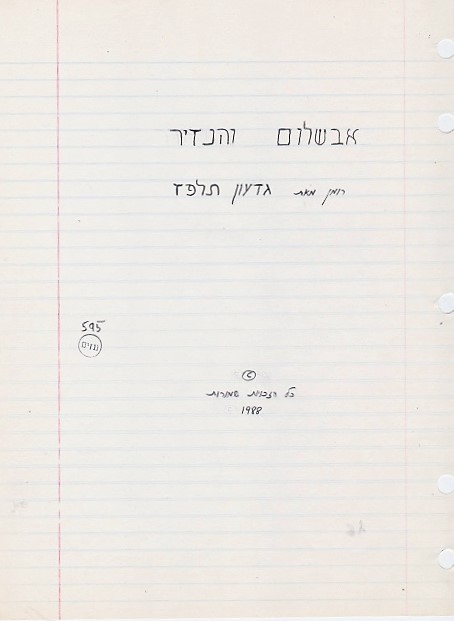 אבשלום והנזיר
רומן מאת גדעון תלפז
595
גנזים
©
כל הזכויות שמורות
1988